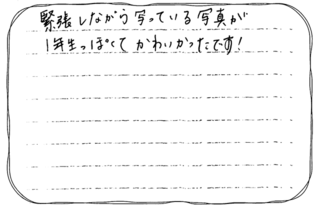 緊張しながら写っている写真が
1年生っぽくてかわいかったです!